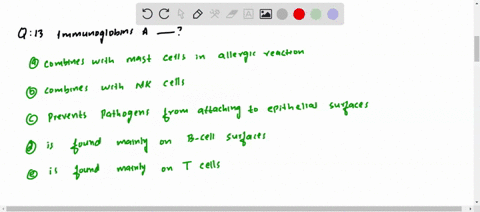 Q:13 Immunoglobins A — ?
(a) combines with mast cells in allergic reaction
(b) combines with NK cells
(c) Prevents Pathogens from attaching to epithelias surfaces
(d) is found mainly on B-cell surfaces
(e) is found mainly on T cells